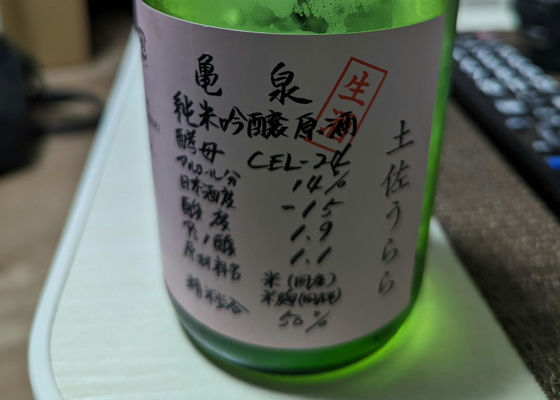 亀泉
生酒
純米吟醸原酒
酵母 CEL-24
アルコール分 14%
日本酒度 -15
酸度 1.9
アミノ酸 1.1
原材料名 米(国産)
米麹(国産米)
精米歩合 50%
土佐うらら